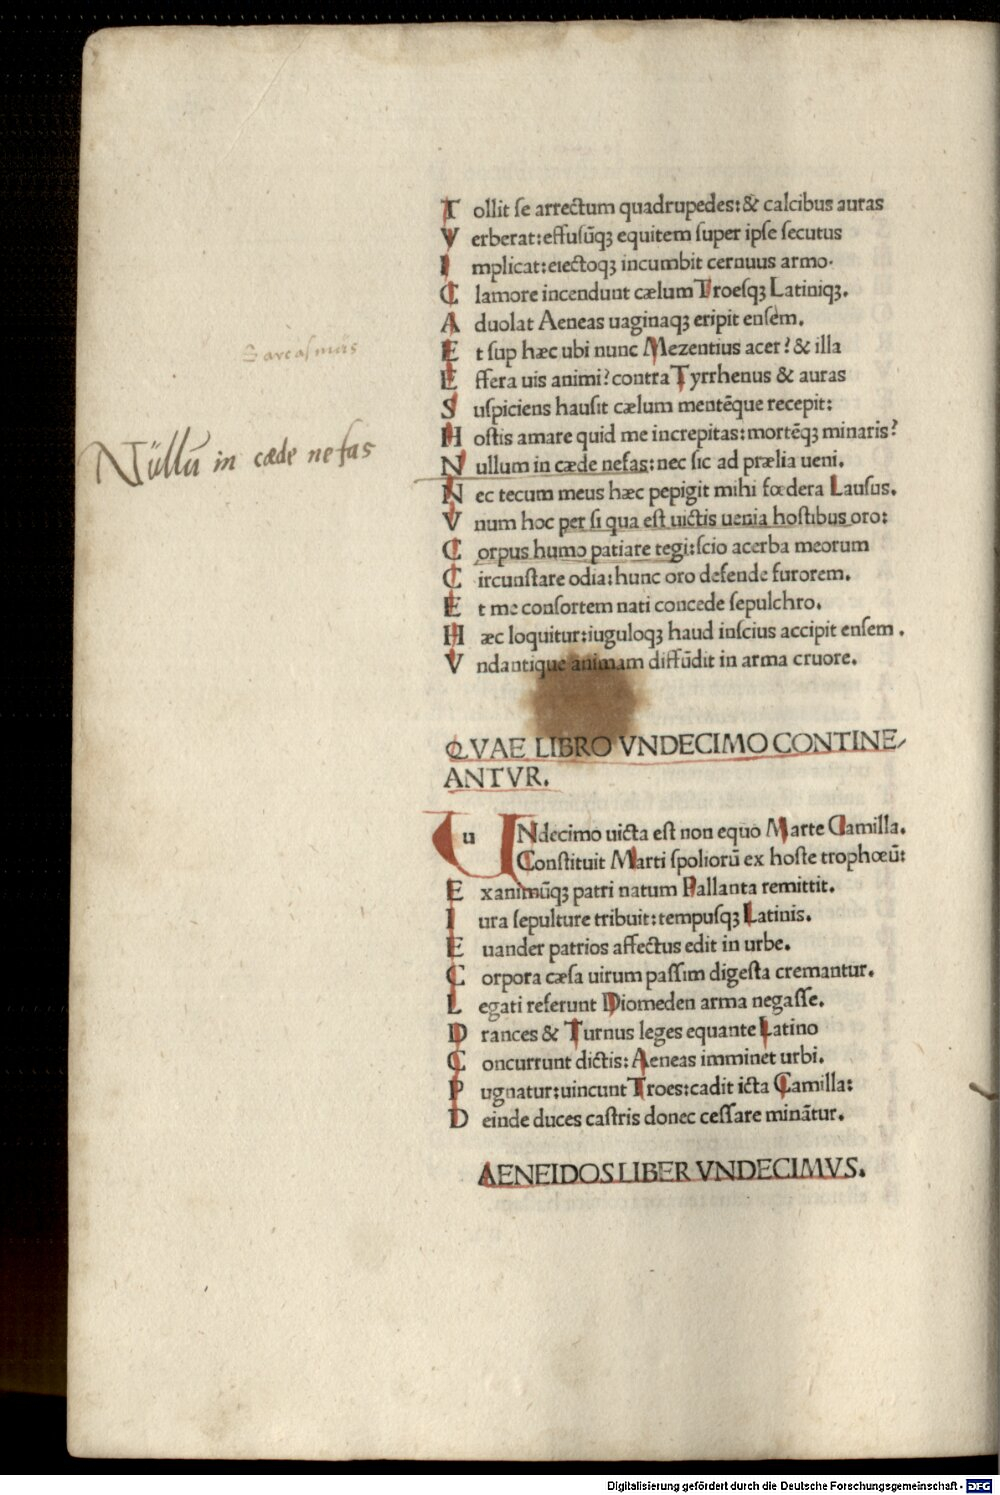 Tollit se arrectum quadrupedes: & calcibus auras
Verberat: effusũqꝫ equitem super ipse secutus
Implicat: eiectoqꝫ incumbit cernuus armo.
Clamore incendunt cælum Troesqꝫ Latiniqꝫ.
Aduolat Aeneas uaginaqꝫ eripit ensem.
Sarcasmus
Et sup hæc ubi nunc Mezentius acer? & illa
Effera uis animi? contra Tyrrhenus & auras
Suspiciens hausit cælum mentēque recepit:
Hostis amare quid me increpitas: mortēqꝫ minaris?
Nullũ in cæde nefas
Nullum in cæde nefas: nec sic ad prælia ueni.
Nec tecum meus hæc pepigit mihi fœdera Lausus.
Vnum hoc per si qua est uictis uenia hostibus oro:
Corpus humo patiare tegi: scio acerba meorum
Circunstare odia: hunc oro defende furorem.
Et me consortem nati concede sepulchro.
Hæc loquitur: iuguloqꝫ haud inscius accipit ensem.
Vndantique animam diffũdit in arma cruore.
QVAE LIBRO VNDECIMO CONTINE-
ANTVR.
u VNdecimo uicta est non equo Marte Camilla.
Constituit Marti spoliorũ ex hoste trophœũ:
Exanimũqꝫ patri natum Pallanta remittit.
Iura sepulture tribuit: tempusqꝫ Latinis.
Euander patrios affectus edit in urbe.
Corpora cæsa uirum passim digesta cremantur.
Legati referunt Diomeden arma negasse.
Drances & Turnus leges equante Latino
Concurrunt dictis: Aeneas imminet urbi.
Pugnatur: uincunt Troes: cadit icta Camilla:
Deinde duces castris donec cessare minãtur.
AENEIDOS LIBER VNDECIMVS.
Digitalisierung gefördert durch die Deutsche Forschungsgemeinschaft - DFG